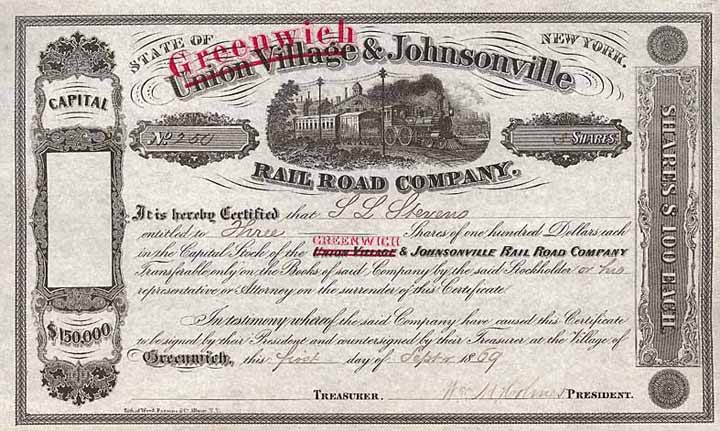 STATE OF NEW YORK.
Greenwich
Union Village & Johnsonville
CAPITAL
No. 250
3 SHARES
RAIL ROAD COMPANY.
It is hereby Certified that S L Stevens
entitled to Three Shares of one hundred Dollars each
GREENWICH
in the Capital Stock of the UNION VILLAGE & JOHNSONVILLE RAIL ROAD COMPANY
Transferable only on the Books of said Company by the said Stockholder or his
representative or Attorney on the surrender of this Certificate.
$150,000
In testimony whereof the said Company have caused this Certificate
to be signed by their President and countersigned by their Treasurer at the Village of
Greenwich, this first day of Septr 1869
TREASURER. Wm M Holmes PRESIDENT.
Lith. of Weed, Parsons & Co. Albany, N.Y.
SHARES $100 EACH